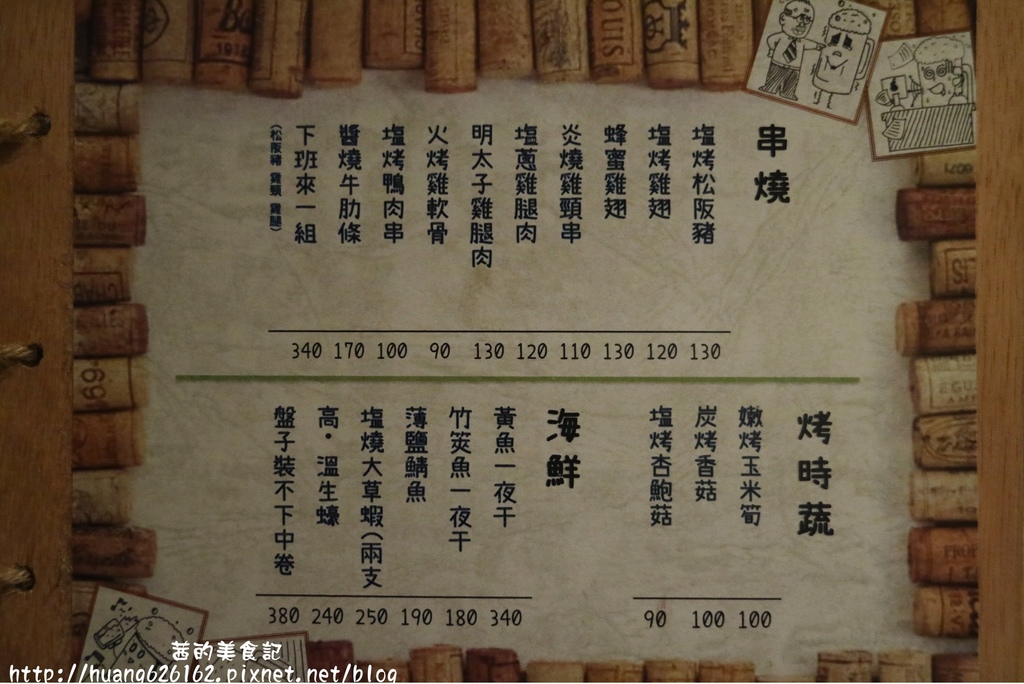 串燒
塩烤松阪豬
130
塩烤雞翅
120
蜂蜜雞翅
130
炎燒雞頸串
110
塩蔥雞腿肉
120
明太子雞腿肉
130
火烤雞軟骨
90
塩烤鴨肉串
100
醬燒牛肋條
170
下班來一組
(松阪豬 雞頸 雞腿)
340
烤時蔬
嫩烤玉米筍
100
炭烤香菇
100
塩烤杏鮑菇
90
海鮮
黃魚一夜干
340
竹筴魚一夜干
180
薄鹽鯖魚
190
塩燒大草蝦(兩支
250
高·溫生蠔
240
盤子裝不下中卷
380
茜的美食記
http://huang626162.pixnet.net/blog